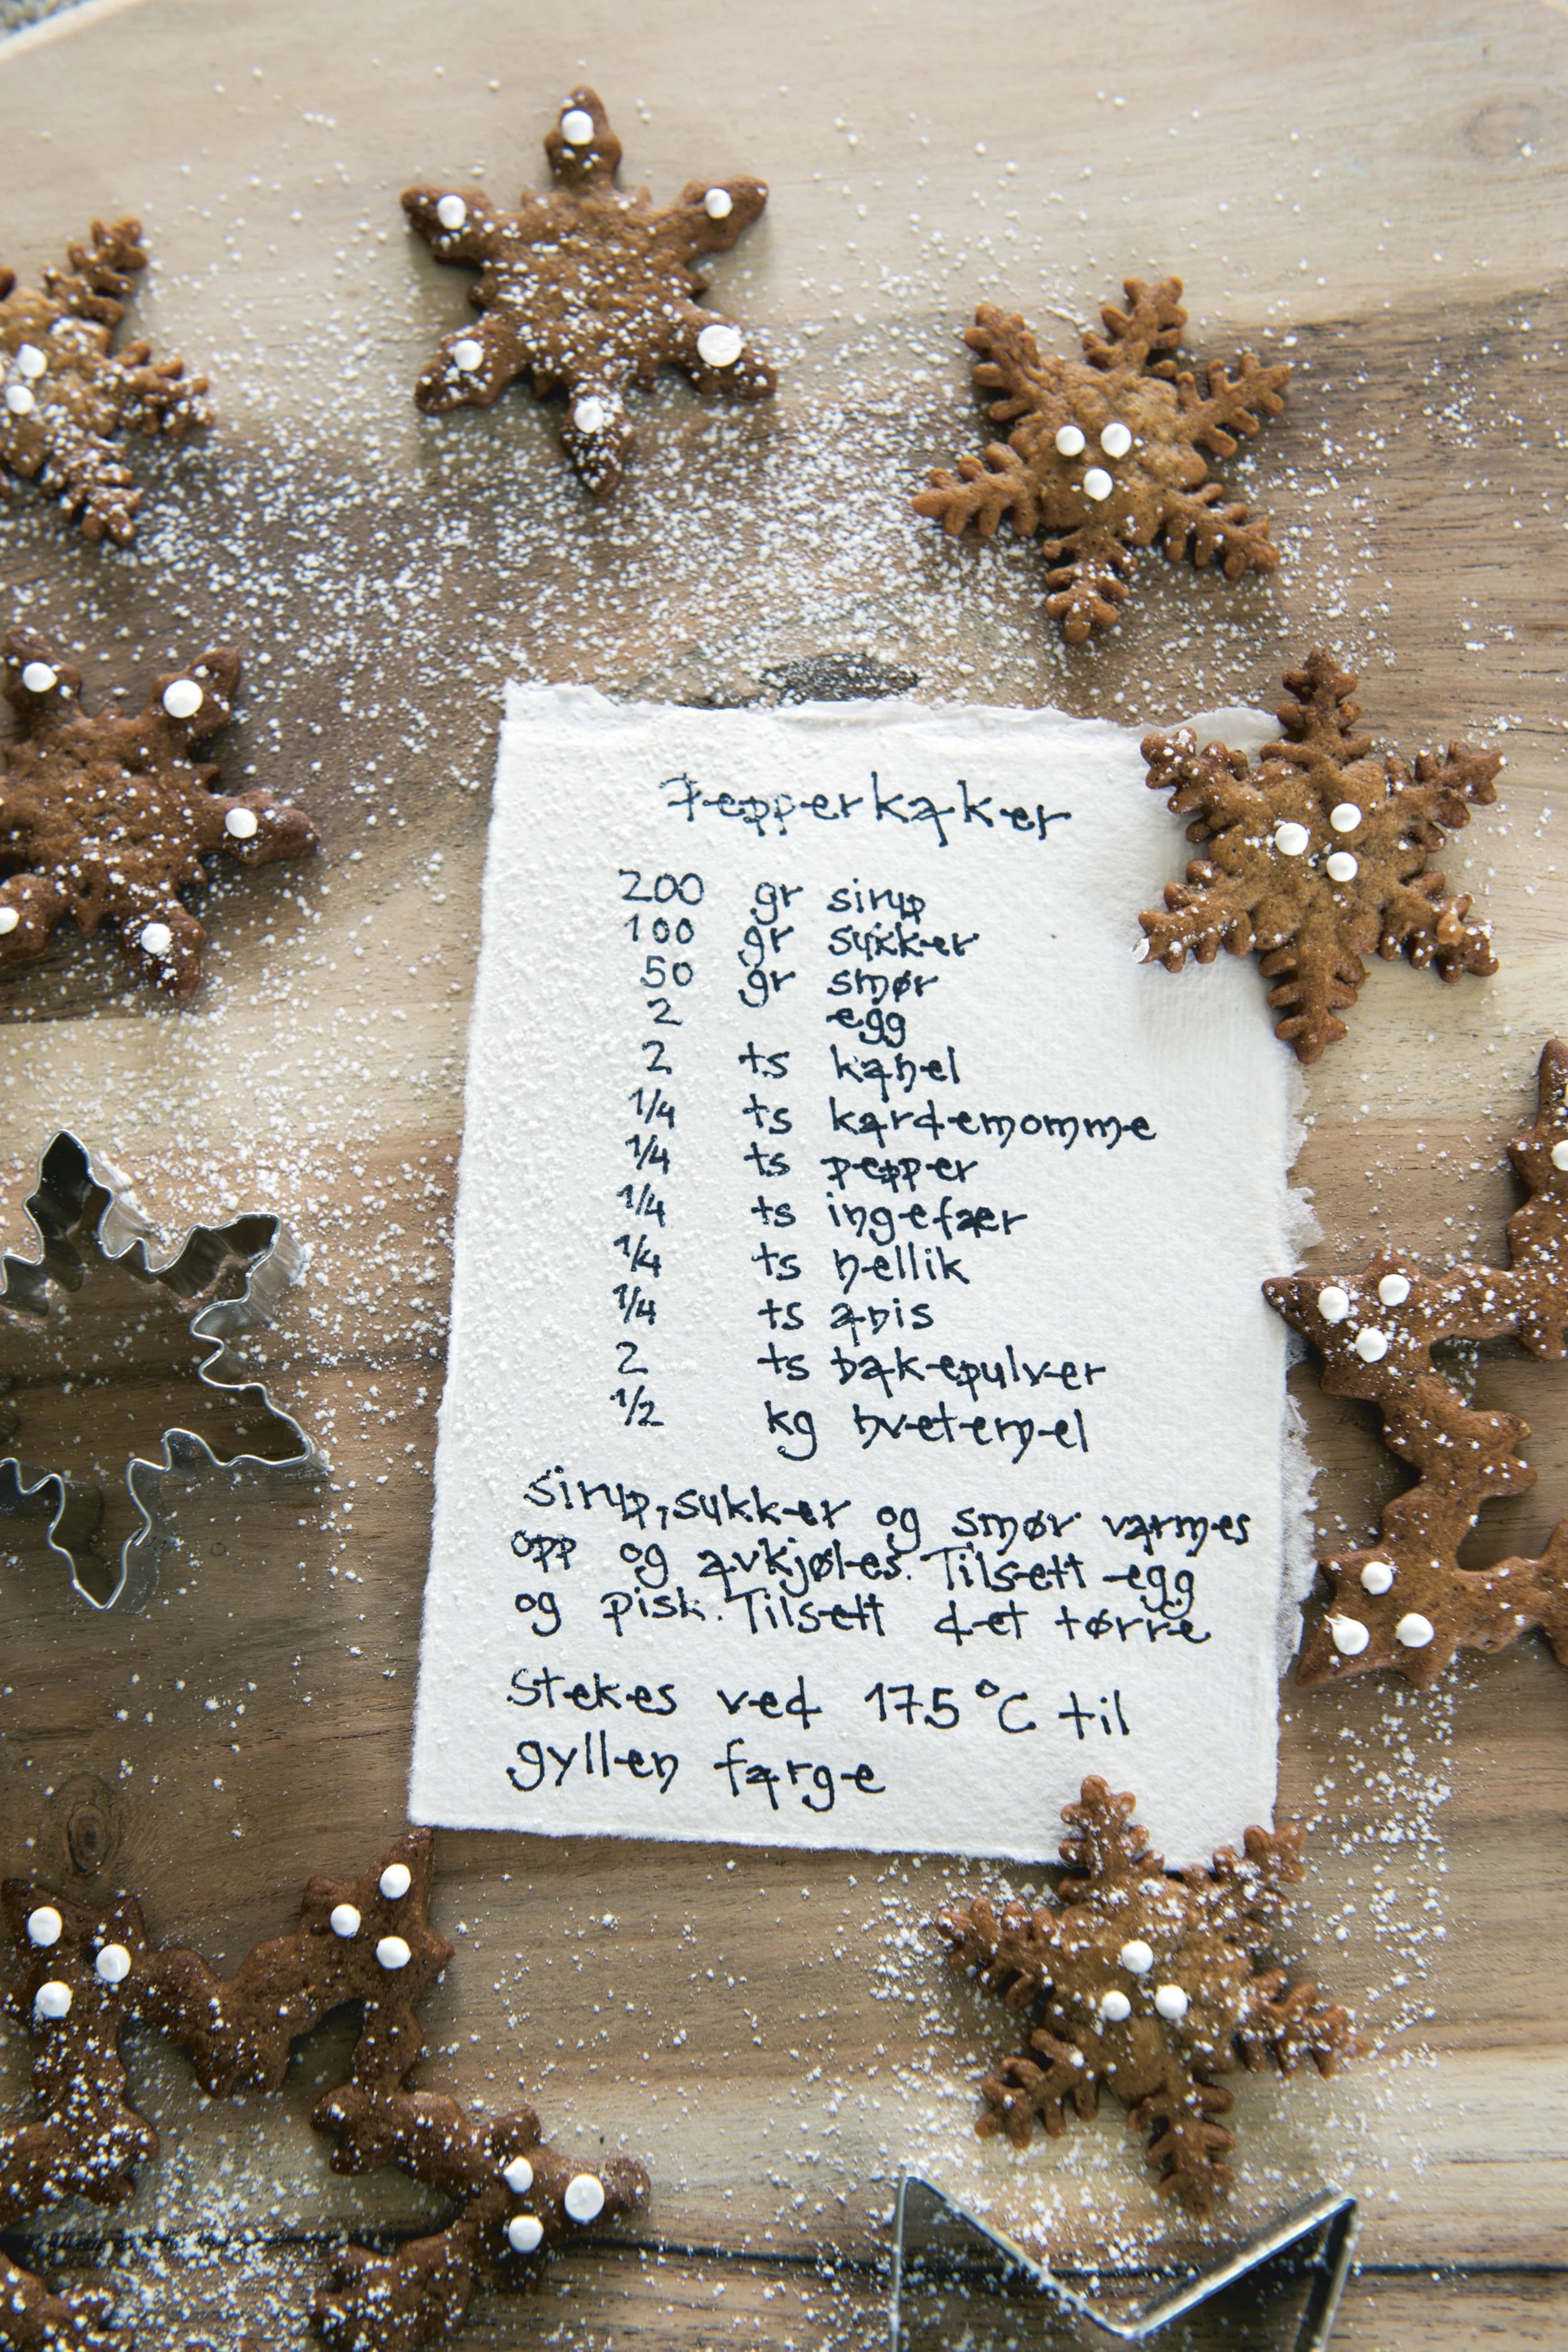 Pepperkaker
200 gr sirup
100 gr sukker
50 gr smør
2 egg
2 ts kanel
1/4 ts kardemomme
1/4 ts pepper
1/4 ts ingefær
1/4 ts nellik
1/4 ts anis
2 ts bakepulver
1/2 kg hvetemel
Sirup, sukker og smør varmes
opp og avkjøles. Tilsett egg
og pisk. Tilsett det tørre
Stekes ved 175°C til
gyllen farge